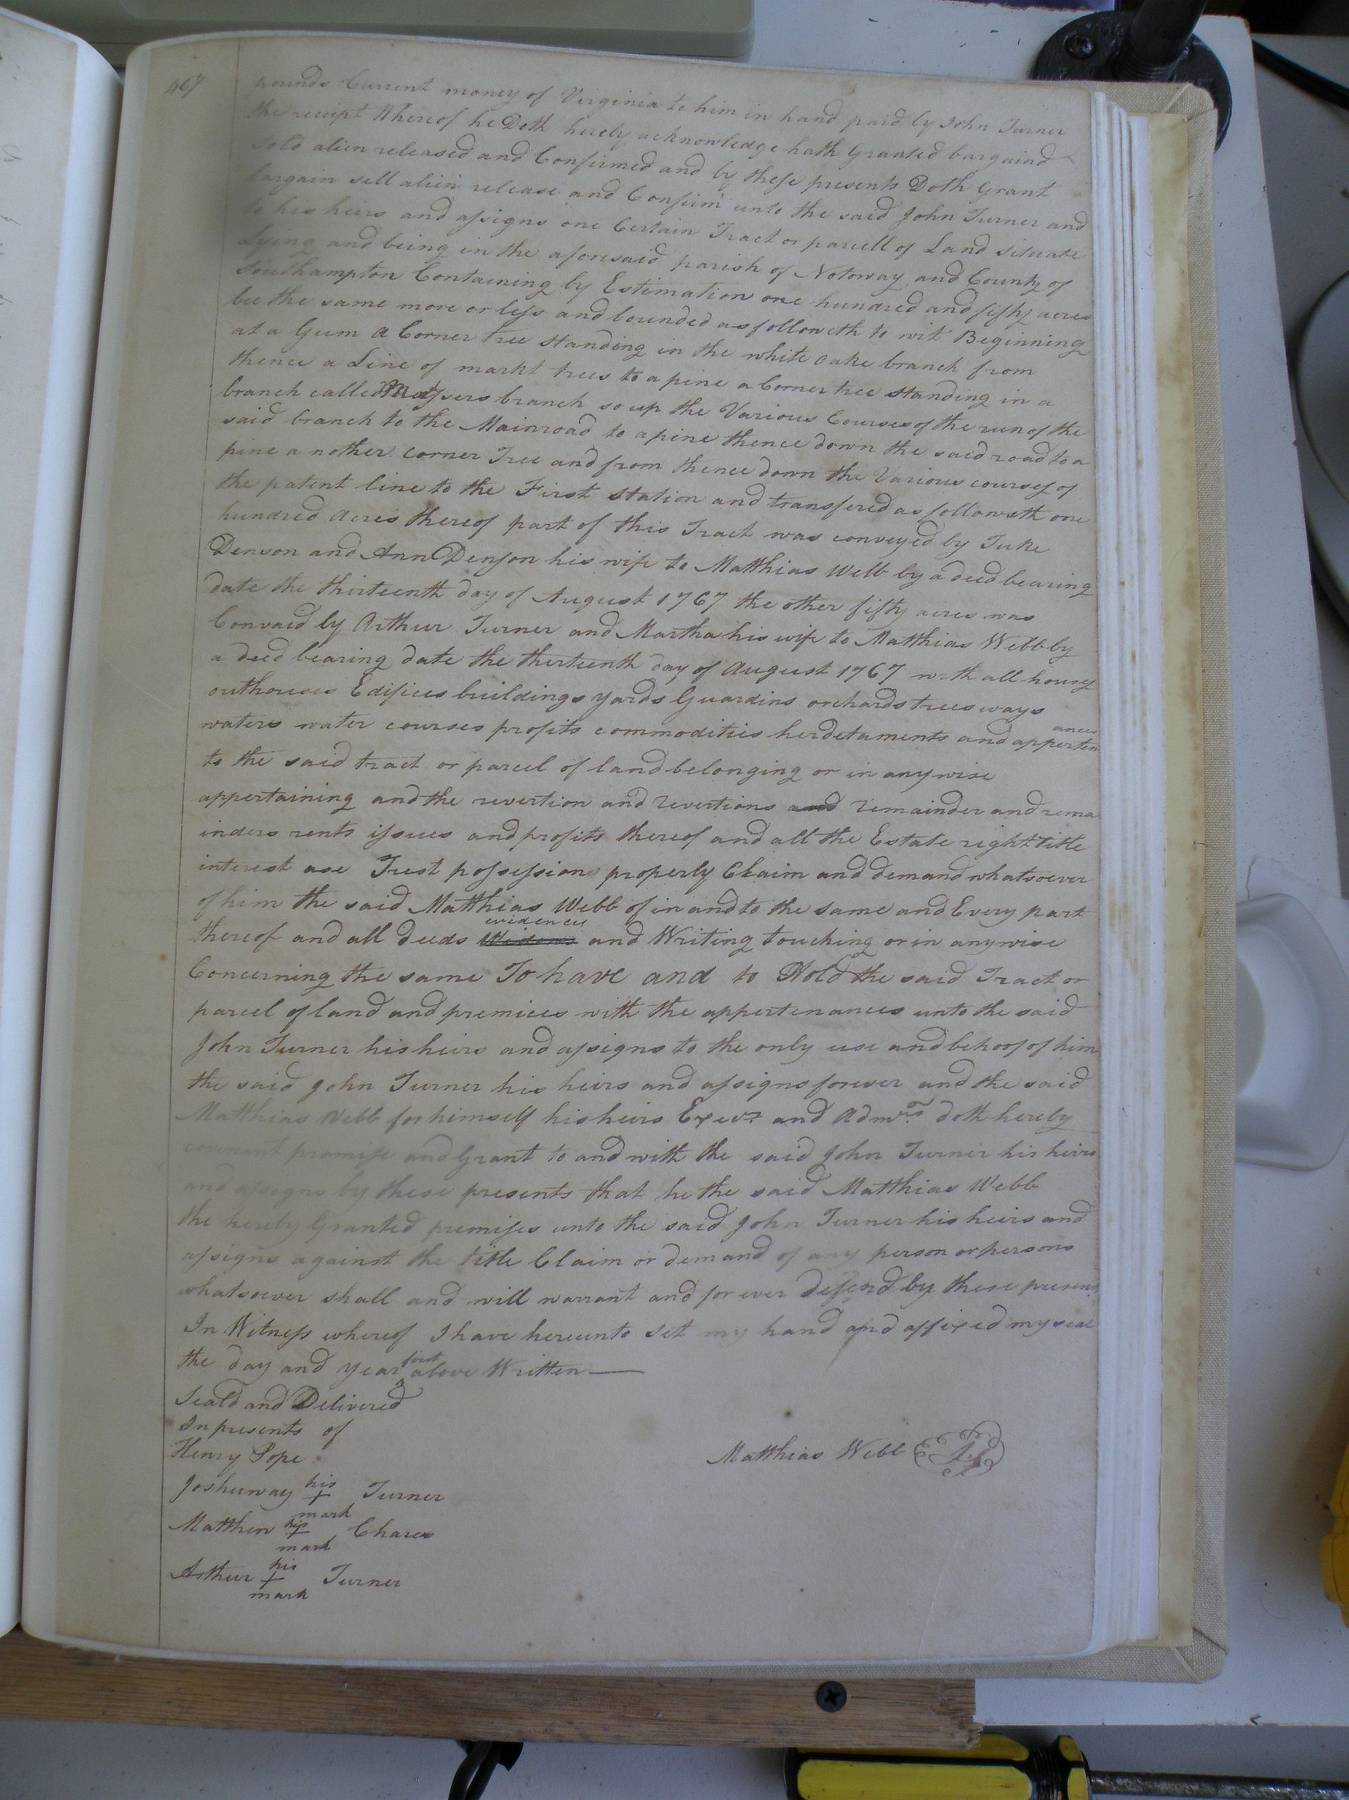 467
pounds Current money of Virginia to him in hand paid by John Turner
the receipt Whereof he Doth hereby acknowledge hath Granted bargaind
sold alien released and Confirmed and by these presents Doth Grant
bargain sell alien release and Confirm unto the said John Turner and
to his heirs and assigns one Certain Tract or parcell of Land situate
Lying and being in the aforesaid parish of Notoway and County of
Southampton Containing by Estimation one hundred and fifty acres
bee the same more or less and bounded as followeth to wit Beginning
at a Gum a Corner tree standing in the white oake branch from
thence a Line of markt trees to a pine a Corner tree standing in a
branch called branch so up the Various Courses of the run of the
said branch to the Mainroad to a pine thence down the said road to a
pine a nother corner Tree and from thence down the Various courses of
the patent line to the First station and transfered as followeth one
hundred acres thereof part of this Tract was conveyed by Tuke
Denson and Ann Denson his wife to Matthias Webb by a deed bearing
date the thirteenth day of August 1767 the other fifty acres was
Convaid by Arthur Turner and Martha his wife to Matthias Webb by
a deed bearing date the thirteenth day of August 1767 with all houses
outhouses Edifices buildings yards Guardins orchards trees ways
waters water courses profits commodities herdetaments and apperten
ances
to the said tract or parcel of land belonging or in any wise
appertaining and the revertion and revertions and remainder and rema
inders rents issues and profits thereof and all the Estate right title
interest use Trest possession property Claim and demand whatsoever
of him the said Matthias Webb of in and to the same and Every part
thereof and all deeds evidences and Writing touching or in any wise
Concerning the same To have and to Hold the said Tract or
parcel of land and premices with the appertenances unto the said
John Turner his heirs and assigns to the only use and behoof of him
the said John Turner his heirs and assigns forever and the said
Matthias Webb for himself his heirs Exers and Admrs doth hereby
covenant promise and Grant to and with the said John Turner his heirs
and assigns by these presents that he the said Matthias Webb
the hereby Granted premises unto the said John Turner his heirs and
assigns against the title Claim or demand of any person or persons
whatsoever shall and will warrant and for ever defend by these presents
In Witness whereof I have hereunto set my hand and affixed my seal
the day and year first above Written
Seald and Delivered
In presents of
Henry Pope
Matthias Webb LS
Joshuway his + mark Turner
Matthew his + mark Chares
Arthur his + mark Turner